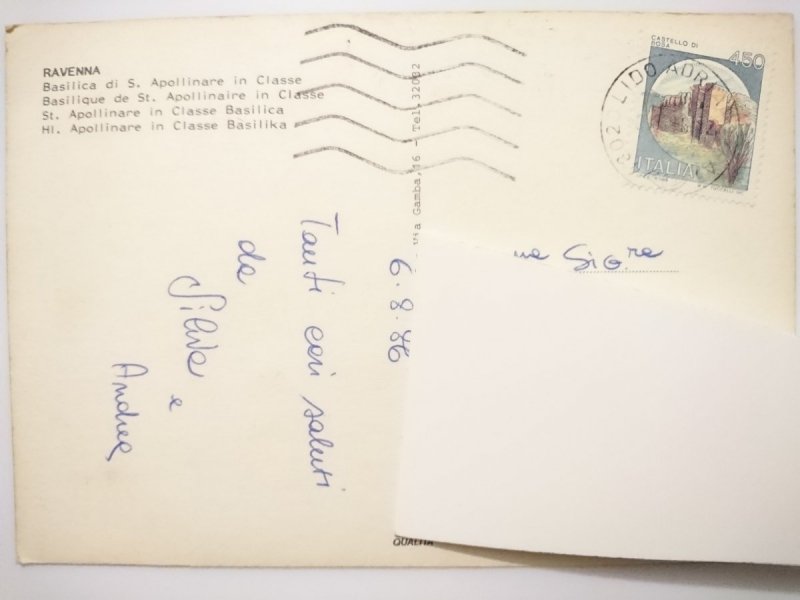 RAVENNA
Basilica di S. Apollinare in Classe
Basilique de St. Apollinaire in Classe
St. Apollinare in Classe Basilica
Hl. Apollinare in Classe Basilika
Via Gamba, 16 - Tel. 32032
CASTELLO DI
ROSA
450
ITALIA
LIDO ADRIANO
Sig.ra
6.8.86
Tanti cari saluti
da
Silvia
e
Andrea
QUALITÀ